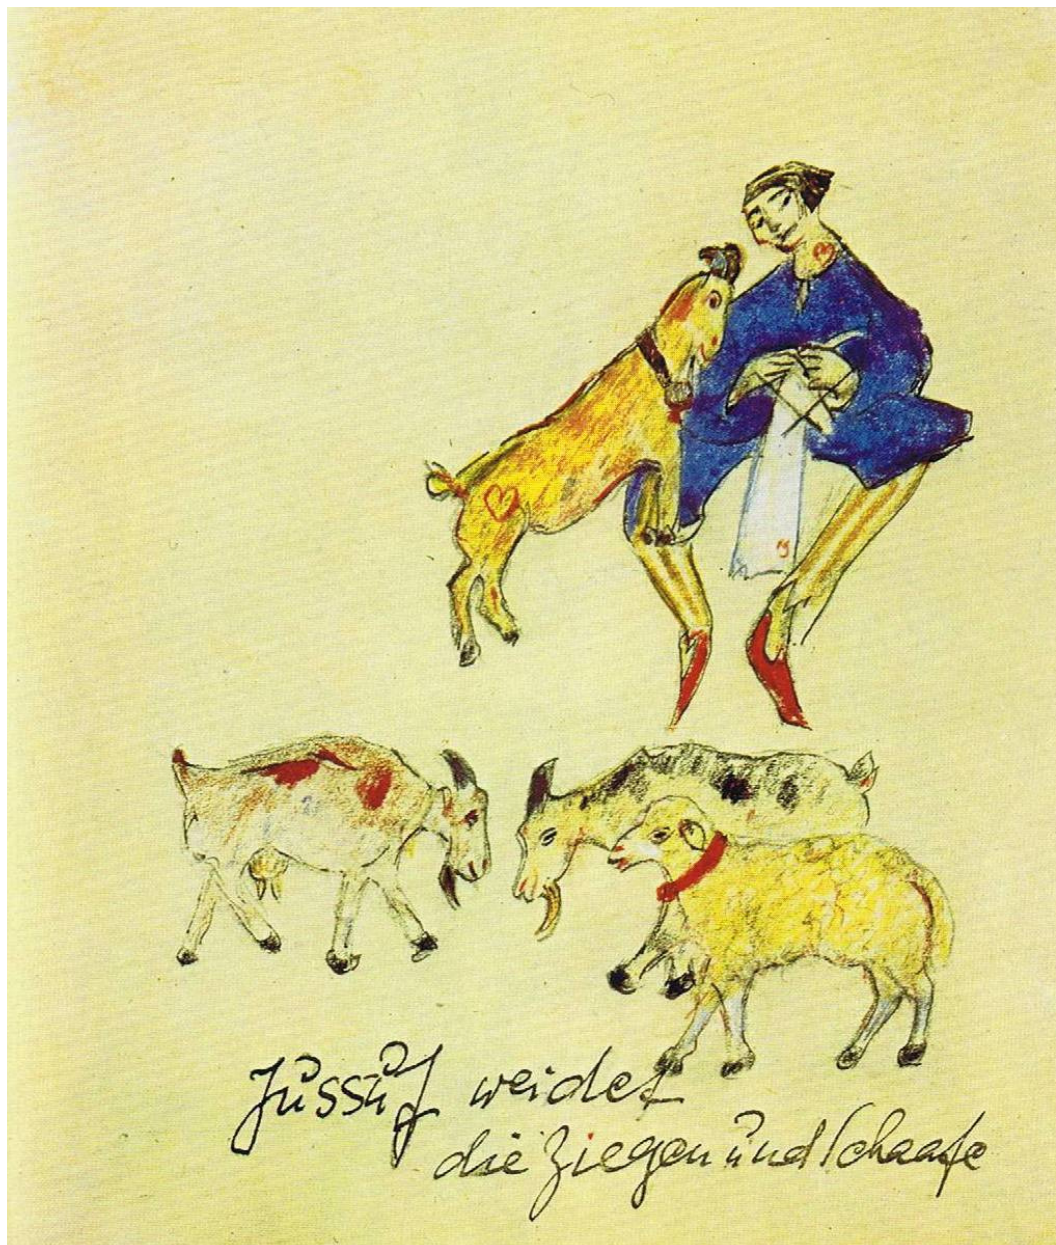 Jussuf weidet
die Ziegen und Schaafe